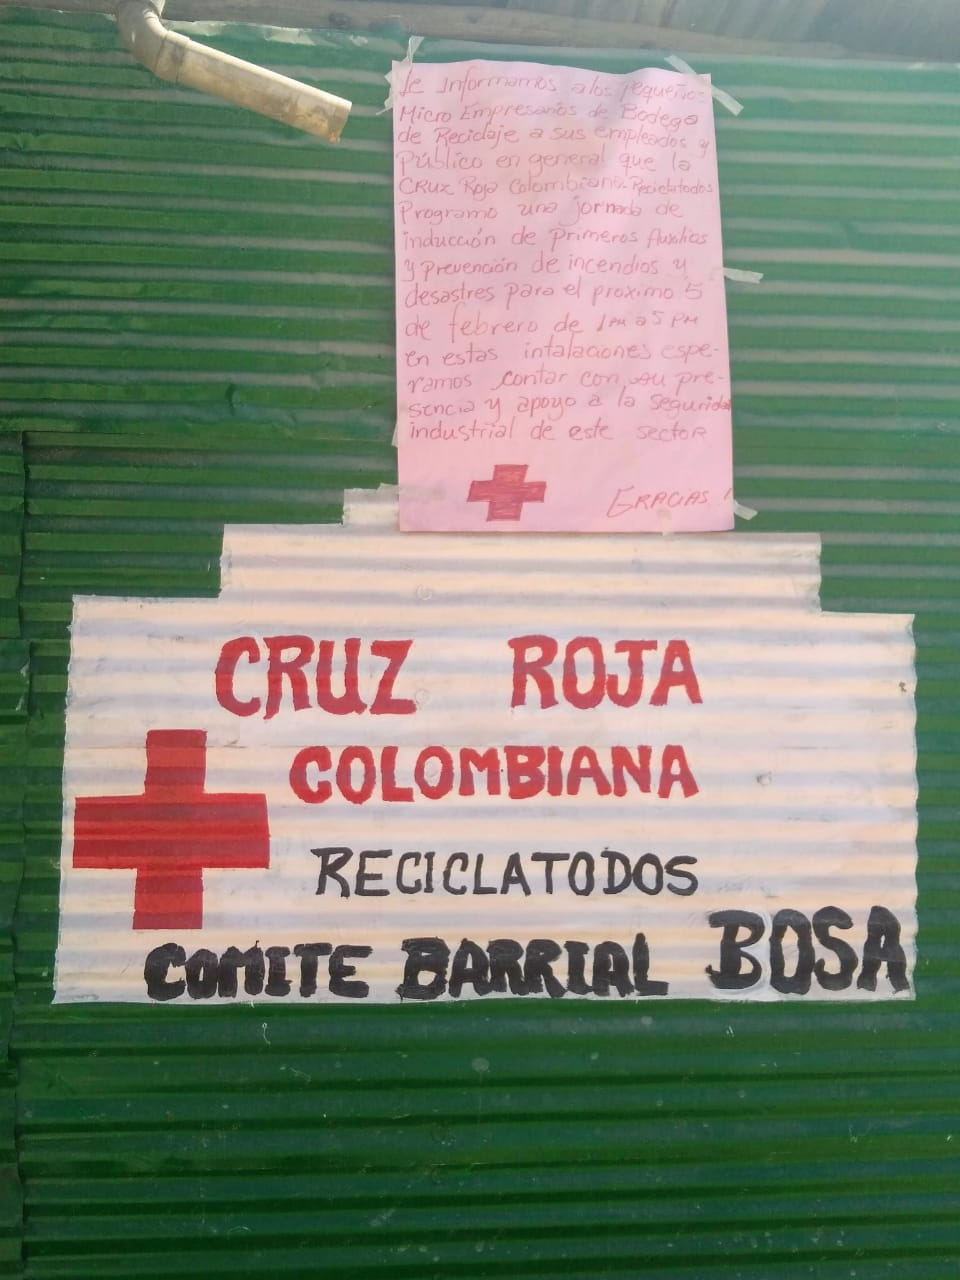 Le informamos a los pequeños
Micro Empresarios de Bodega
de Reciclaje a sus empleados y
Público en general que la
CRUZ Roja Colombiana Reciclatodos
Programo una jornada de
inducción de primeros Auxilios
y prevención de incendios y
desastres para el proximo 5
de febrero de 1 PM a 5 PM
en estas intalaciones espe-
ramos contar con su pre-
sencia y apoyo a la seguridad
industrial de este sector
GRACIAS !
CRUZ ROJA
COLOMBIANA
RECICLATODOS
COMITE BARRIAL BOSA